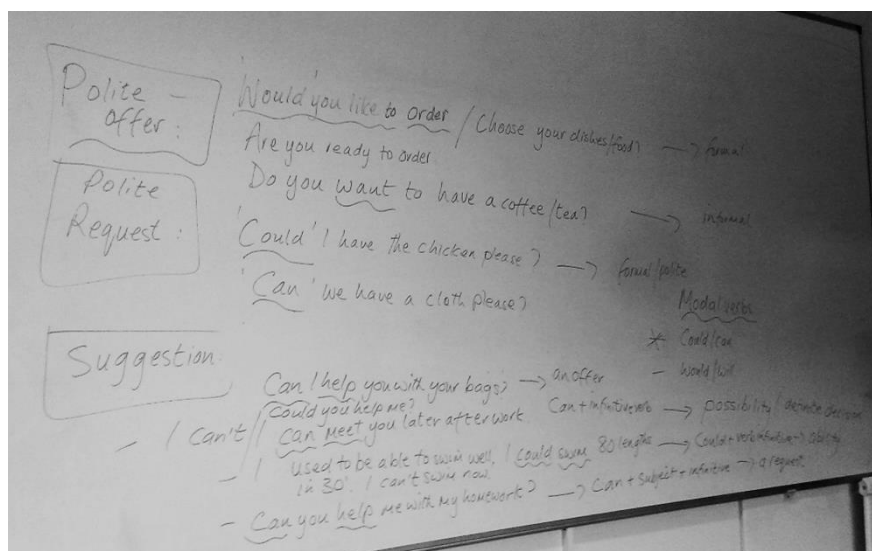 Polite – offer:
'Would' you like to order / Choose your dishes/food? → formal
Are you ready to order
Do you want to have a coffee/tea? → informal
Polite Request:
'Could' I have the chicken please? → formal/polite
'Can' we have a cloth please?
Modal verbs
* Could/can
– Would/will
Suggestion
Can I help you with your bags? → an offer
Could you help me?
– I can't / I can meet you later after work. Can + infinitive verb → possibility / definite decision
– I used to be able to swim well, I could swim 80 lengths → Could + verb infinitive → ability
in 30'. I can't swim now.
– Can you help me with my homework? → Can + subject + infinitive → a request.